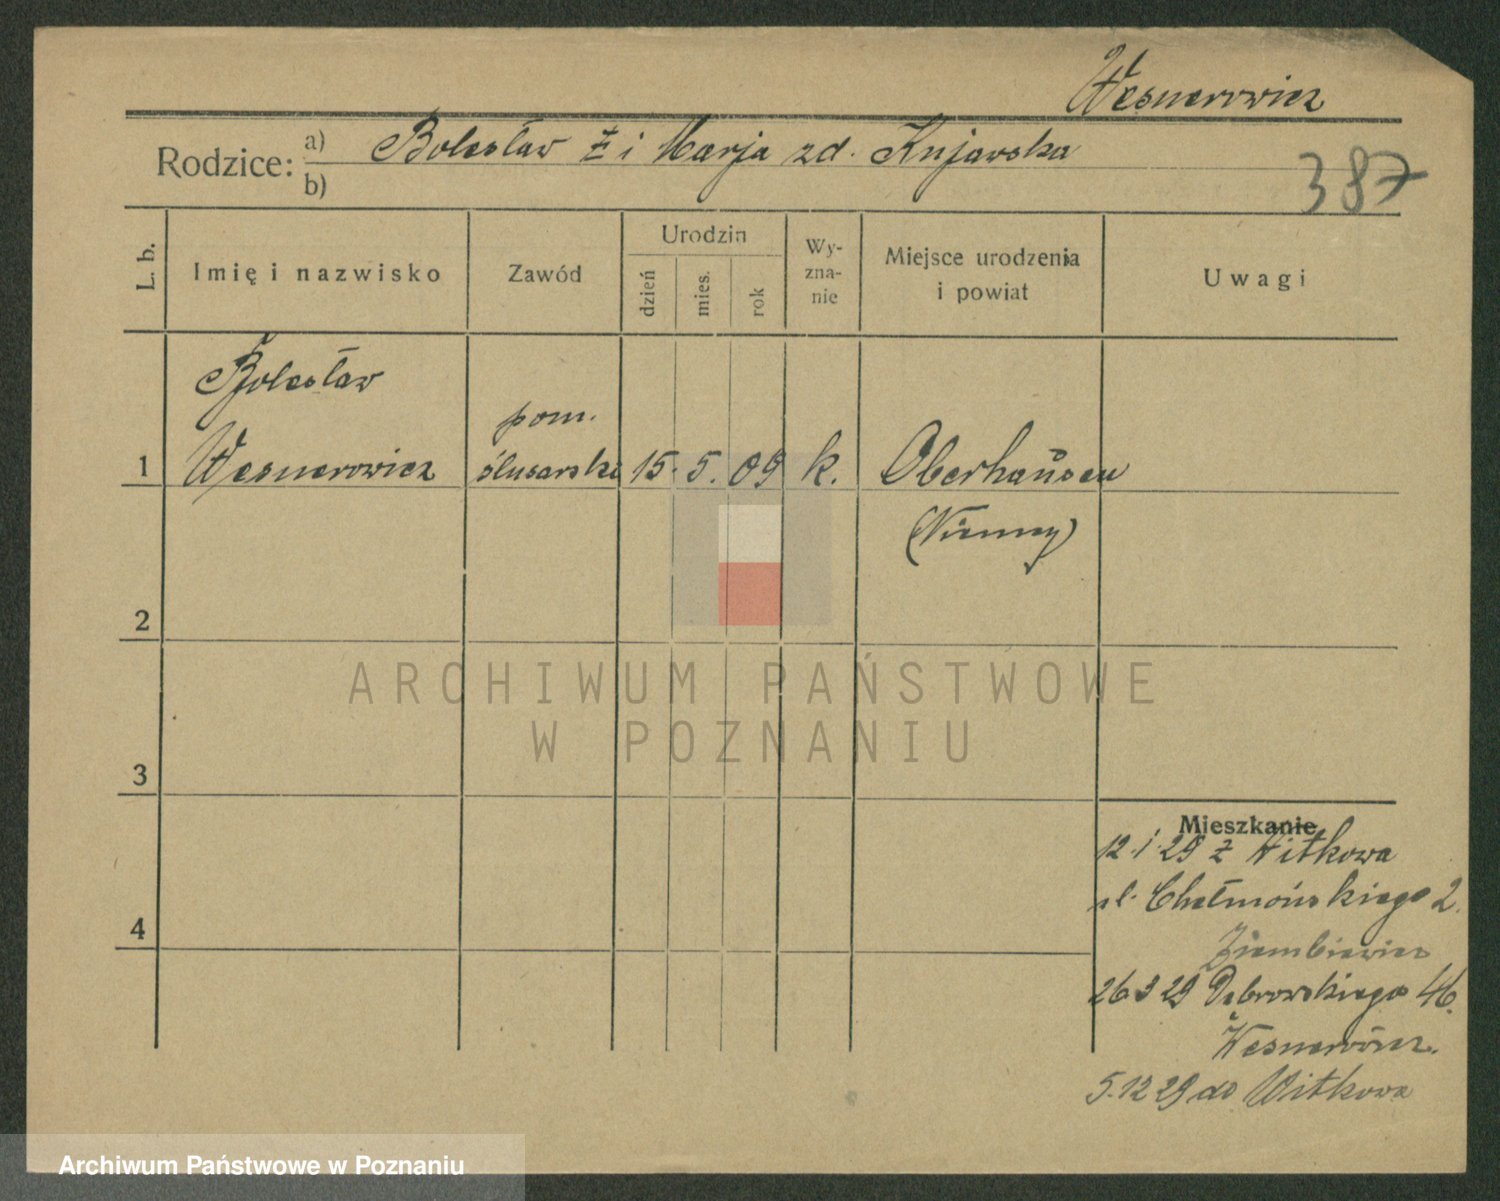 Wesnerowicz
Rodzice: a) Bolesław Ż i Marja zd. Kujawska
b)
387
L. b.
Imię i nazwisko
Zawód
Urodzin
dzień
mies.
rok
Wy-
zna-
nie
Miejsce urodzenia
i powiat
Uwagi
Bolesław
pom.
1 Wesnerowicz ślusarski 15. 5. 09 k. Oberhausen
(Niemcy)
2
3
4
ARCHIWUM PAŃSTWOWE
W POZNANIU
Mieszkanie
12.1.29 z Witkowa
ul. Chełmońskiego 2.
Ziembiewicz
26 3 29 Dąbrowskiego 46.
Wesnerowicz.
5.12 29 do Witkowa
Archiwum Państwowe w Poznaniu